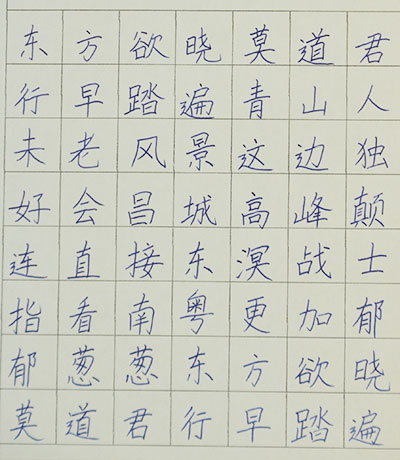 东方欲晓莫道君
行早踏遍青山人
未老风景这边独
好会昌城高峰颠
连直接东溟战士
指看南粤更加郁
郁葱葱东方欲晓
莫道君行早踏遍